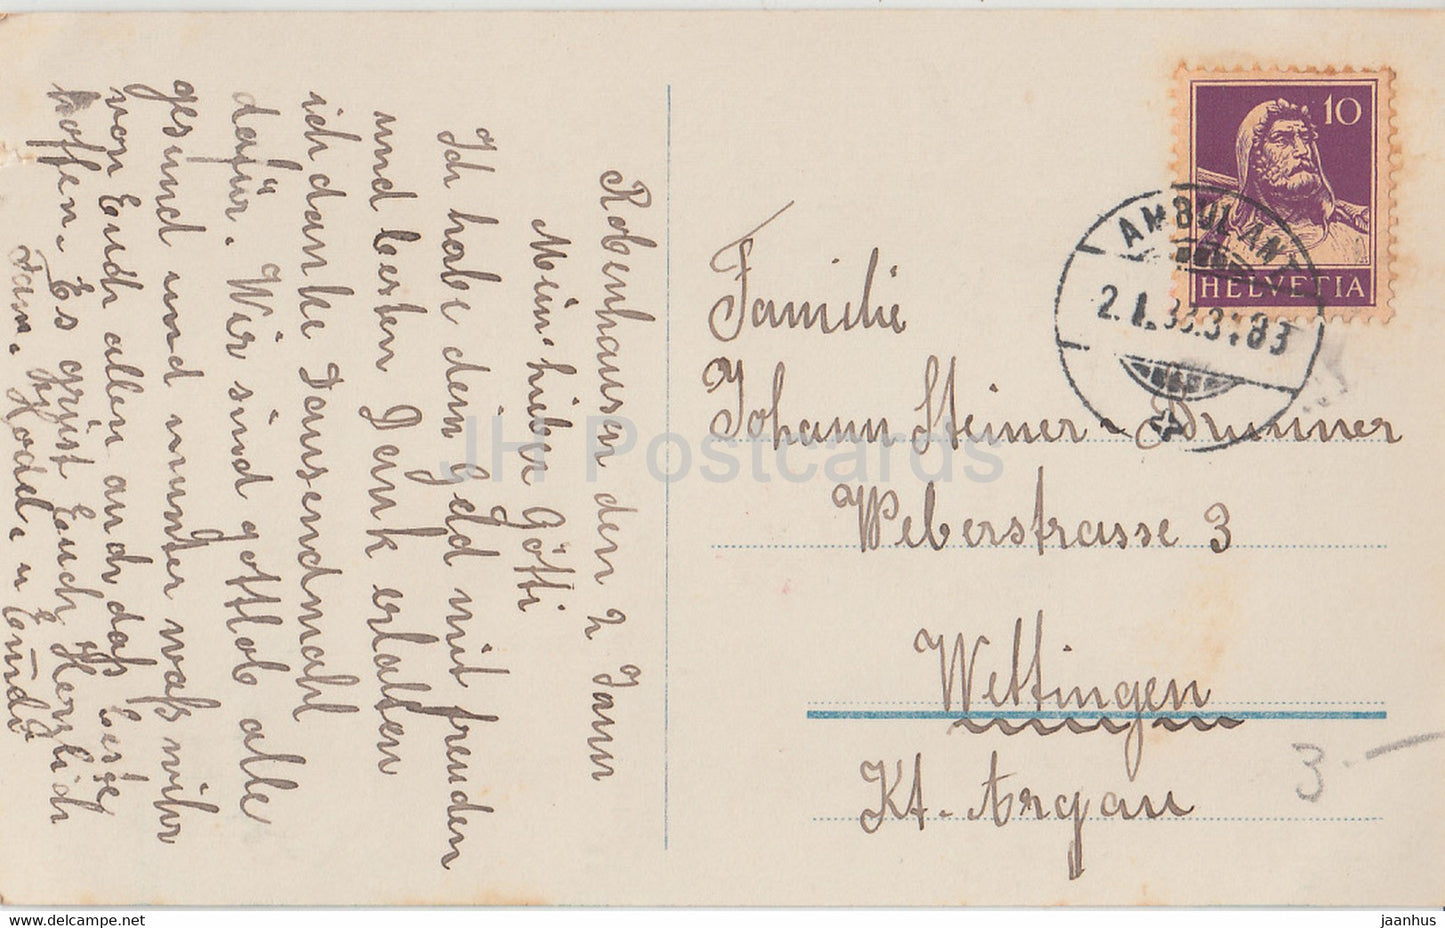 Robenhausen den 2 Jann
Mein lieber Götti
Ich habe dein Geld mit freuden
und besten Dank erlalten
ich danke Dausendmahl
dafür. Wir sind gottlob alle
gesund und munter waß wihr
von Euch allen auch daß beste
hoffen. Es grüst Euch Herzlich
Fam. Hodd. u
10
HELVETIA
AMBULANT
2.1.33.3183
Familie
Johann Steiner-Brunner
Weberstrasse 3
Wettingen
Kt. Argau
3.-
JH Postcards
https://www.delcampe.net
jaanhus